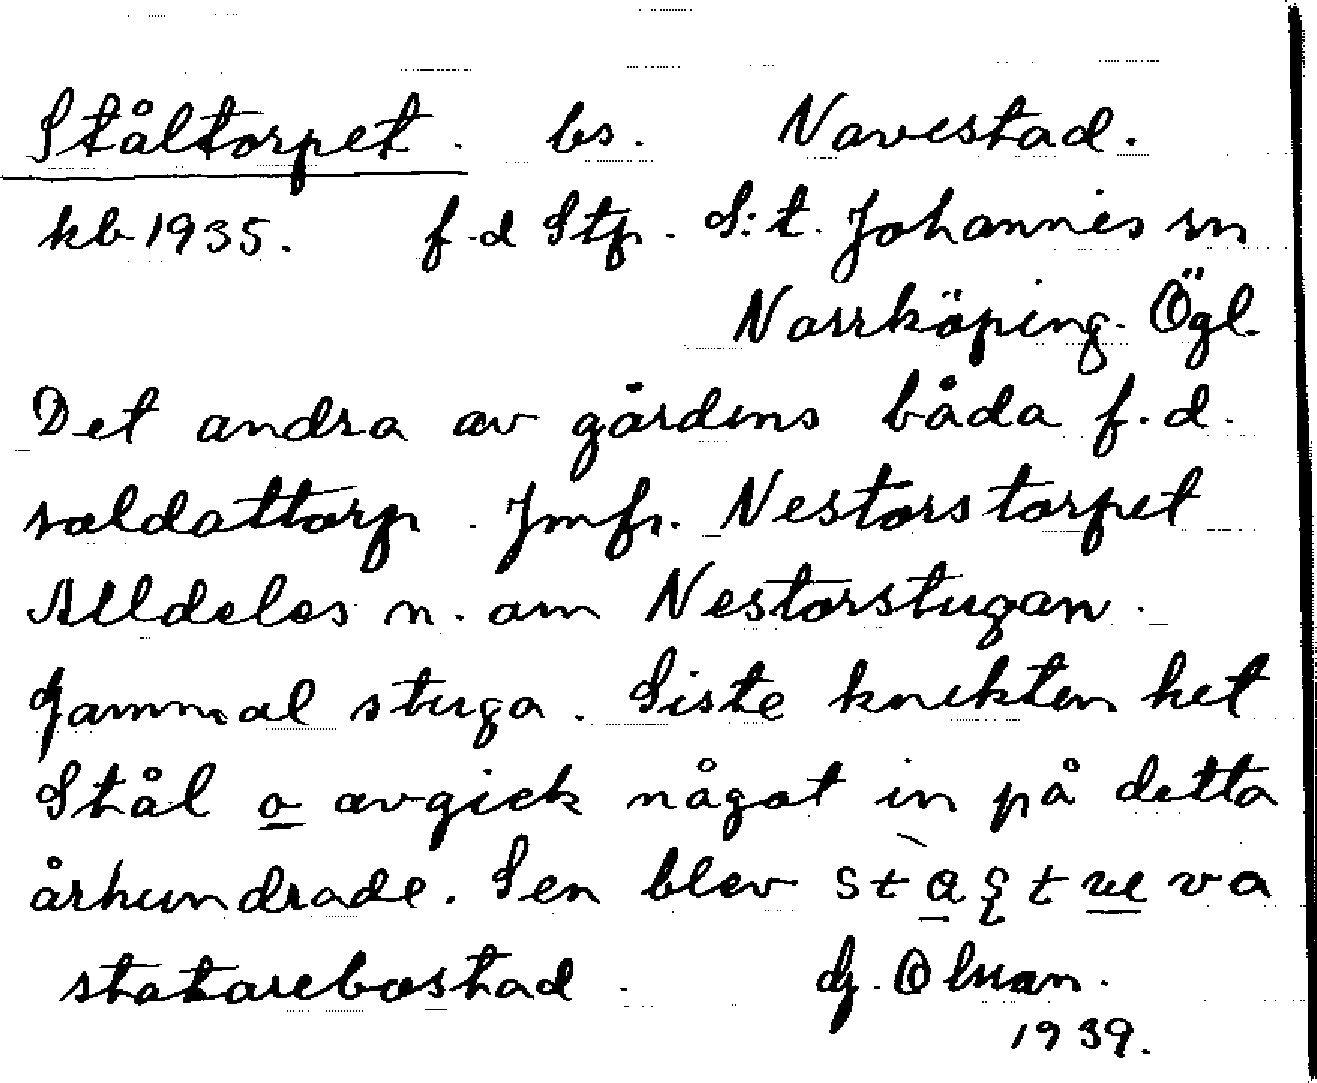 Ståltorpet. bs. Navestad.
kb 1935. f.d Stp. S:t. Johannes sn
Norrköping. Ögl.
Det andra av gårdens båda f.d.
soldattorp. Jmfr. Nestorstorpet
Alldeles n. om Nestorstugan.
Gammal stuga. Siste knekten het
Stål o avgick något in på detta
århundrade. Sen blev
statarebostad. G. Olman.
1939.